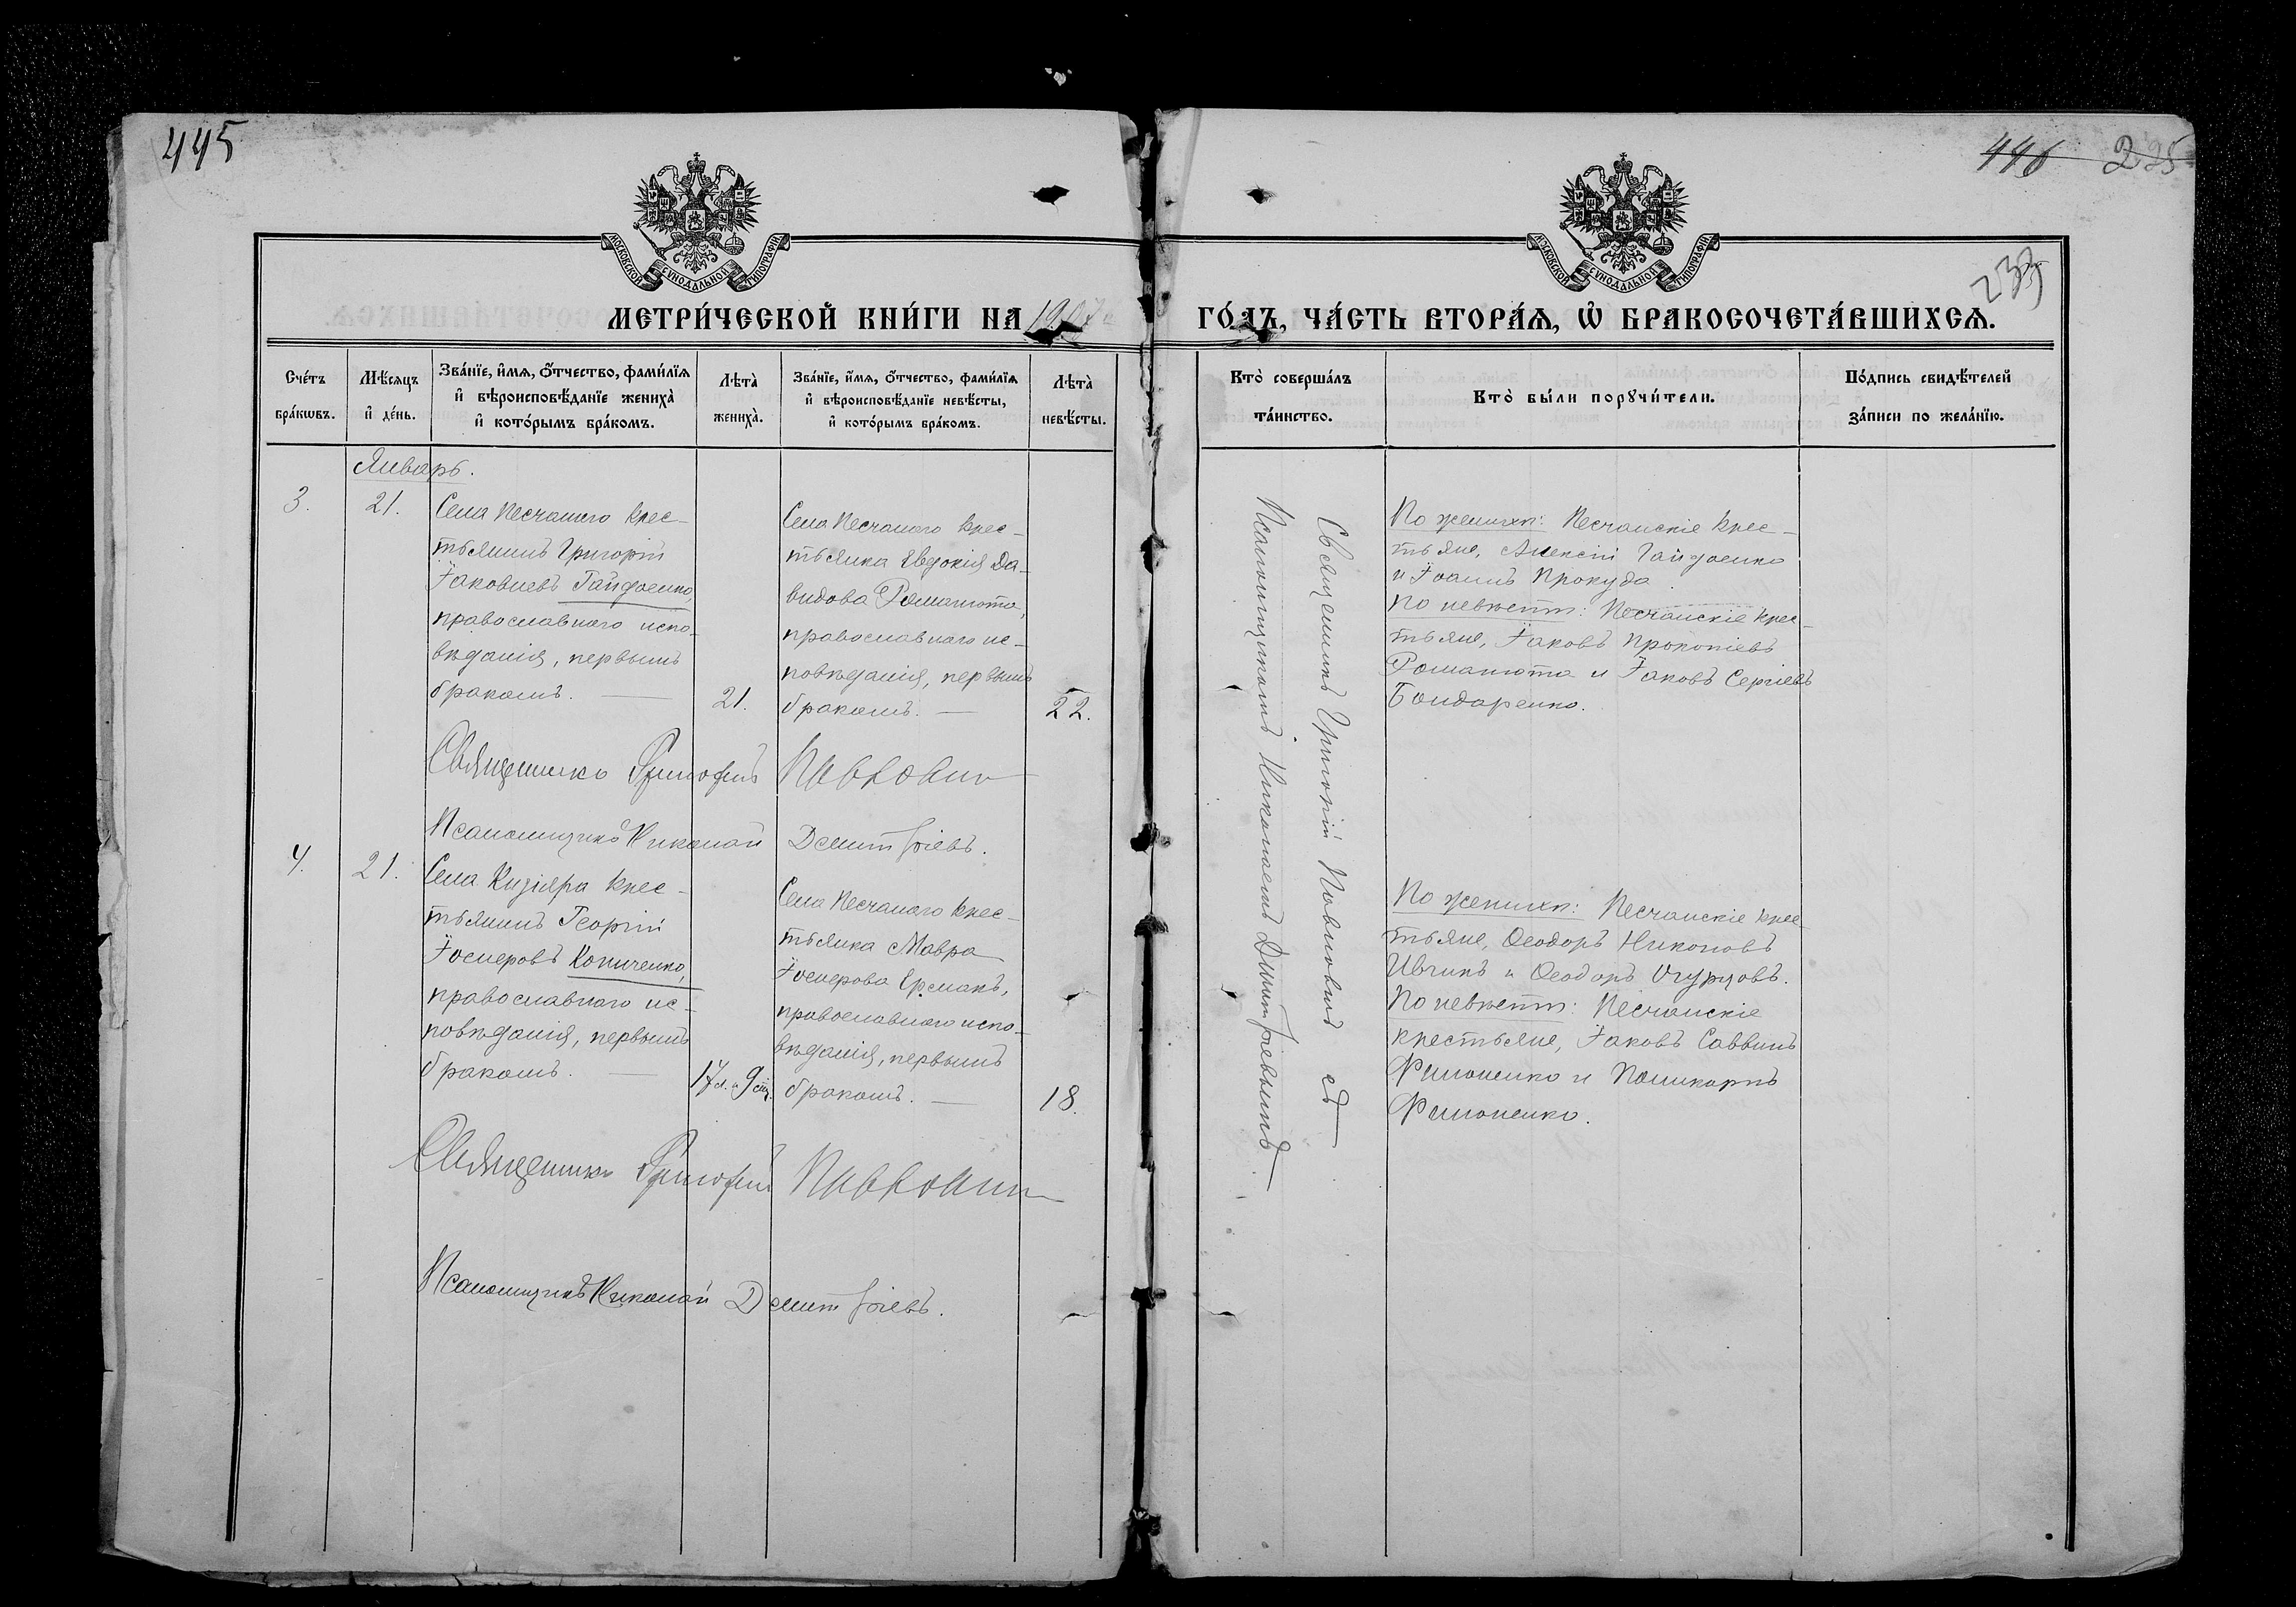 445
446 225
233
МОСКОВСКОЙ СѴНОДАЛЬНОЙ ТИПОГРАФІИ
МОСКОВСКОЙ СѴНОДАЛЬНОЙ ТИПОГРАФІИ
МЕТРИ́ЧЕСКОЙ КНИ́ГИ НА 1907 ГО́ДЪ, ЧА́СТЬ ВТОРА́Ѧ, Ѡ҆ БРАКОСОЧЕТА́ВШИХСѦ.
Сче́тъ
бра́кѡвъ.
Мѣ́сяцъ
и҆ де́нь.
Зва́нїе, и҆́мя, ѻ҆́тчество, фами́лїя
и҆ вѣроисповѣ́данїе жениха̀
и҆ кото́рымъ бра́комъ.
Лѣта̀
жениха̀.
Зва́нїе, и҆́мя, ѻ҆́тчество, фами́лїя
и҆ вѣроисповѣ́данїе невѣ́сты,
и҆ кото́рымъ бра́комъ.
Лѣта̀
невѣ́сты.
Кто̀ соверша́лъ
та́инство.
Кто̀ бы́ли порꙋчи́тели.
По́дпись свидѣ́телей
за́писи по жела́нїю.
Январь.
3.
21.
Села Песчанаго крес-
тьянинъ Григорій
Іаковлевъ Гайдоенко,
православнаго испо-
вѣданія, первымъ
бракомъ.
21.
Села Песчанаго крес-
тьянка Евдокія Да-
видова Романюта,
православнаго ис-
повѣданія, первымъ
бракомъ.
22.
Священникъ Григорій Павловичъ съ
Псаломщикомъ Николаемъ Димитріевымъ
По женихѣ: Песчанскіе крес-
тьяне, Алексій Гайдоенко
и Іоаннъ Прокуда
По невѣстѣ: Песчанскіе крес-
тьяне, Іаковъ Прокопіевъ
Романюта и Іаковъ Сергіевъ
Бондаренко.
Священникъ Григорій Павловичъ
Псаломщикъ Николай Демитріевъ.
4.
21.
Села Кизіяра крес-
тьянинъ Георгій
Іосифовъ Копиченко,
православнаго ис-
повѣданія, первымъ
бракомъ.
17 л. и 9 мц.
Села Песчанаго крес-
тьянка Мавра
Іосифова Ермакъ,
православнаго испо-
вѣданія, первымъ
бракомъ.
18.
По женихѣ: Песчанскіе крес-
тьяне, Ѳеодоръ Никоновъ
Ивчикъ и Ѳеодоръ Огурцовъ.
По невѣстѣ: Песчанскіе
крестьяне, Іаковъ Саввинъ
Филоненко и Поликарпъ
Филоненко.
Священникъ Григорій Павловичъ
Псаломщикъ Николай Демитріевъ.